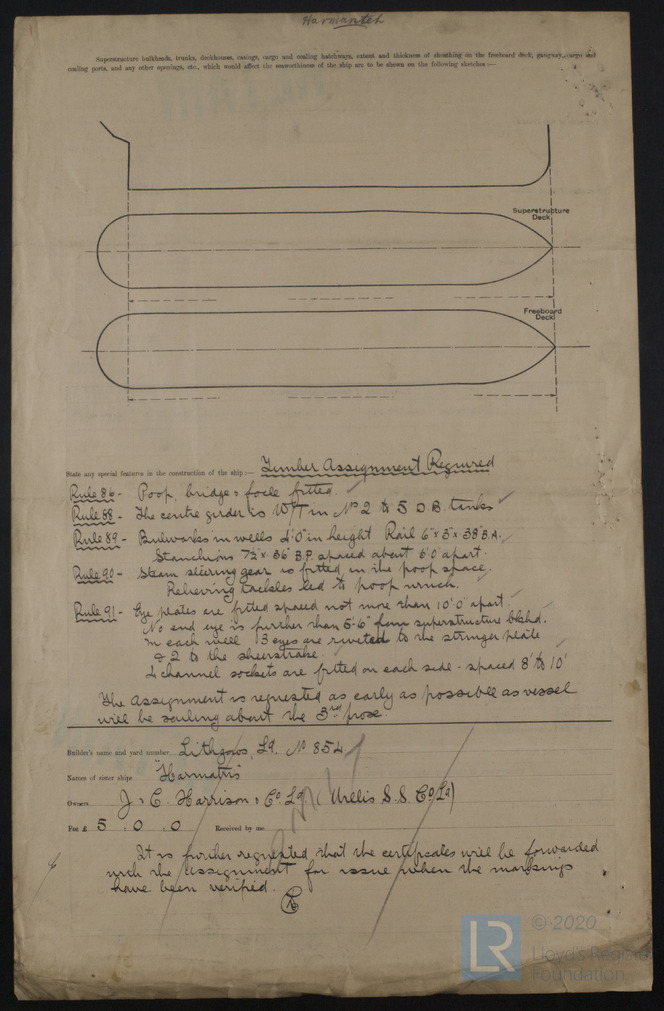 Harmanteh
Superstructure bulkheads, trunks, deckhouses, casings, cargo and coaling hatchways, extent and thickness of sheathing on the freeboard deck, gangway, cargo and
coaling ports, and any other openings, etc., which would affect the seaworthiness of the ship are to be shown on the following sketches :—
Superstructure
Deck
Freeboard
Deck
State any special features in the construction of the ship :— Timber Assignment Required
Rule 86 - Poop, bridge & focle fitted.
Rule 88 - The centre girder is W/T in No 2 to 5 D.B. tanks
Rule 89 - Bulwarks in wells 4'0" in height Rail 6" x 3" x 38" B.A.
Stanchions 7½" x 36" B.P. spaced about 6'0" apart.
Rule 90 - Steam steering gear is fitted in the poop space.
Relieving tackles led to poop winch.
Rule 91 - Eye plates are fitted spaced not more than 10'0" apart.
No end eye is further than 5'-6" from superstructure blkhd.
In each well 3 eyes are riveted to the stringer plate
& 2 to the sheerstrake.
4 channel sockets are fitted on each side - spaced 8' to 10'
The assignment is requested as early as possible as vessel
will be sailing about the 3rd prox.
Builder's name and yard number Lithgows, Ld. No 854
Names of sister ships "Harmatris"
Owners J. & C. Harrison & Co Ld. (Willis S.S. Co Ld)
Fee £ 5 . 0 . 0 Received by me
It is further requested that the certificates will be forwarded
with the assignment for issue when the markings
have been verified.
LR
© 2020
Lloyd's Register
Foundation